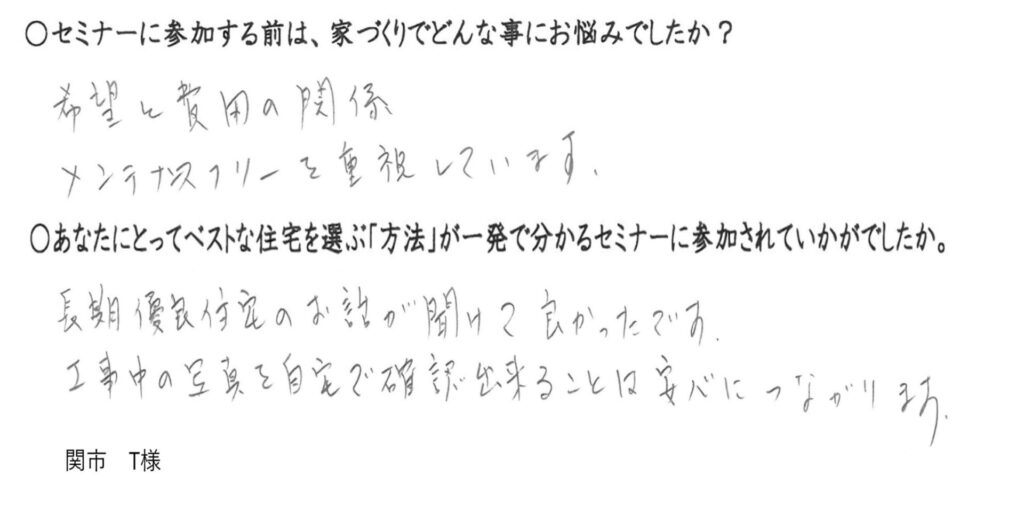 ○セミナーに参加する前は、家づくりでどんな事にお悩みでしたか？
希望と費用の関係
メンテナスフリーを重視しています.
○あなたにとってベストな住宅を選ぶ「方法」が一発で分かるセミナーに参加されていかがでしたか。
長期優良住宅のお話が聞けて良かったです.
工事中の写真を自宅で確認出来ることは安心につながります.
関市　T様